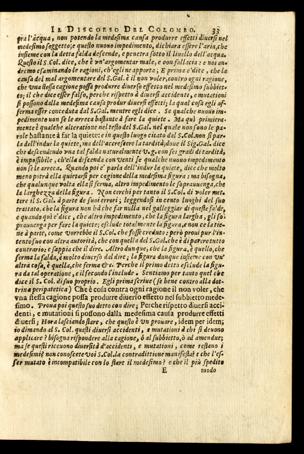 IL DISCORSO DEL COLOMBO. 33
gra l'acqua, non potendo la medesima causa produrre effetti diuersi nel
medesimo soggetto; questo nuouo impedimento, dichiara essere l'aria, che
insieme con la detta falda descende, e penetra sotto il liuello dell'acqua.
Questo il S.Col. dice, che è vn'argomentar male, e con fallacia: e noi an-
dremo esaminando le ragioni, ch'egli ne apporta; E prima e' dice, che la
causa del mal argomentare del S.Gal. è il non voler, contro ogni ragione,
che vna stessa cagione possa produrre diuersi effetti nel medesimo subbiet-
to; il che dice esser falso, perche rispetto a diuersi accidenti, e mutazioni
si possono dalla medesima causa produr diuersi effetti; la qual cosa egli af-
ferma esser conceduta dal S.Gal. mentre egli dice. Se qualche nuouo impe-
dimento non se le arreca basteuole a far la quiete. Ma quì primiera-
mente è qualche alterazione nel testo del S.Gal. nel quale non sono le pa-
role bastante à far la quiete: e in questo luogo citato dal S.Col. non si par-
la dell'indur la quiete, mà dell'accrescer la tardità, doue il Sig.Gal. dice
che descendendo vna tal falda naturalmente V.g. con sei gradi di tardità,
è impossibile, ch'ella discenda con venti se qualche nuouo impedimento
non se le arreca. Quando poi e' parla dell'indur la quiete, dice che molto
meno potrà ella quietarsi per cagione della medesima figura: ma bisogna,
che qualunque volta ella si ferma, altro impedimento le soprauuenga, che
la larghezza della figura. Non cerchi per tanto il S.Col. di voler met-
tere il S.Gal. à parte de suoi errori; leggendosi in cento luoghi del suo
trattato, che la figura non hà che far nulla nel galleggiar di queste falde,
e quando quì e' dice, che altro impedimento, che la figura larga, gli so-
prauuenga per fare la quiete; esclude totalmente la figura, e non ce la tie-
ne à parte, come vorrebbe il S.Col. che fosse creduto: però prouì pur l'in-
tento suo con altra autorità, che con quella del S.Gal. che è di parer tutto
contrario; e sappia che il dire. Altro dunque, che la figura, è quello, che
ferma la falda, è molto diuerso dal dire, la figura dunque insieme con vn'
altra cosa, è quella, che ferma &c. Perche il primo detto esclude la figu-
ra da tal operatione, e il secondo l'include. Sentiamo per tanto quel che
dice il S.Col. di suo proprio. Egli prima scriue (se bene contro alla dot-
trina peripatetica) Che è cosa contra ogni ragione il non voler, che
vna stessa cagione possa produrre diuerso effetto nel subbietto mede-
simo. Proua poi questo suo detto con dire; Perche rispetto à diuersi acci-
denti, e mutazioni si possono dalla medesima causa produrre effetti
diuersi; Hora lasciando stare, che questo è vn prouare, idem per idem;
io dimando al S.Col. questi diuersi accidenti, e mutazioni à chi si deuono
applicare? bisogna rispondere alla cagione, ò al subbietto, ò ad amendue;
ma se questi riceuono diuersità d'accidenti, e mutazioni, come restano i
medesimi? non conoscete voi S.Col. la contradittione manifesta? e che l'es-
ser mutato è incompatibile con lo stare il medesimo? e che il più spedito
E modo